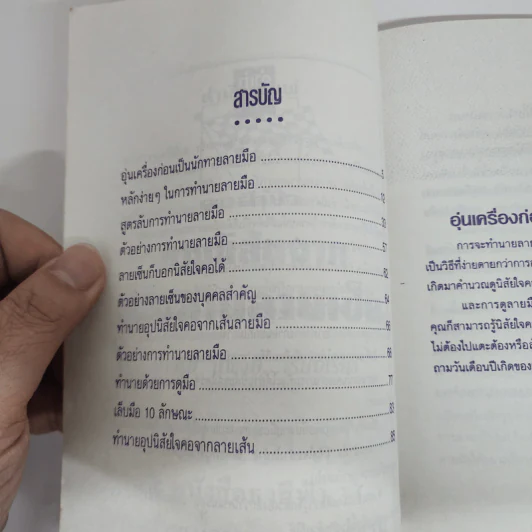 สารบัญ
อุ่นเครื่องก่อนเป็นนักทายลายมือ
หลักง่ายๆ ในการทำนายลายมือ 12
สูตรลับการทำนายลายมือ
ตัวอย่างการทำนายลายมือ 57
ลายเซ็นก็บอกนิสัยใจคอได้
ตัวอย่างลายเซ็นของบุคคลสำคัญ 64
ทำนายอุปนิสัยใจคอจากเส้นลายมือ 66
ตัวอย่างการทำนายลายมือ 68
ทำนายด้วยการดูมือ 77
เล็บมือ 10 ลักษณะ
ทำนายอุปนิสัยใจคอจากลายเส้น
อุ่นเครื่องก่อ
การจะทำนายลาย
เป็นวิธีที่ง่ายดายกว่าการ
เกิดมาคำนวณดูนิสัยใจค
และการดูลายมื
คุณก็สามารถรู้นิสัยใจค
ไม่ต้องไปแตะต้องหรือ
ถามวันเดือนปีเกิดของ